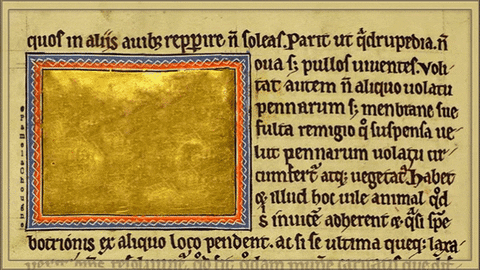 quos in aliis auibꝫ reppire ñ soleas. Parit ut q̇drupedia. ñ
oua sꝫ pullos uiuentes. Voli-
tat autem ñ aliquo uolatu
pennarum sꝫ menbrane sue
fulta remigio q̊ suspensa ue-
lut pennarum uolatu cir-
cumfert̃ atqꝫ uegetat̃. Habet
⁊ illud hoc uile animal q̇d
s inuicē adherent ⁊ q̇si spē
botrionis ex aliquo loco pendent. ac si se ultima queqꝫ laxa-